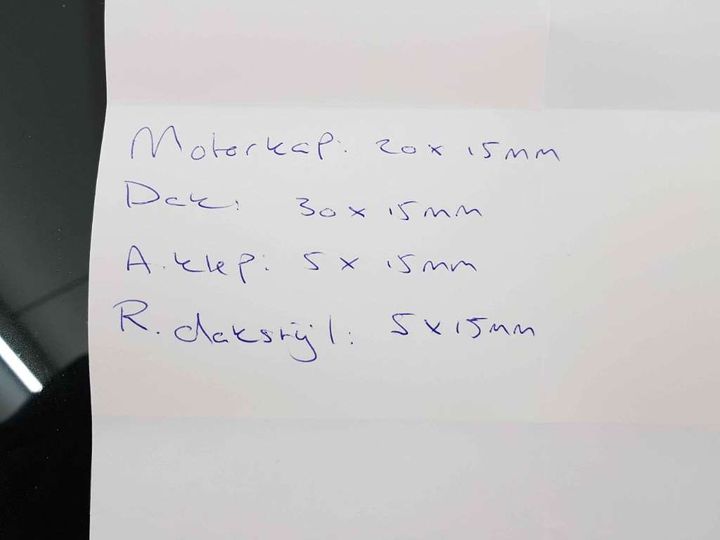 Motorkap: 20 x 15mm
Dak: 30 x 15mm
A. klep: 5 x 15mm
R. dakstijl: 5 x 15mm